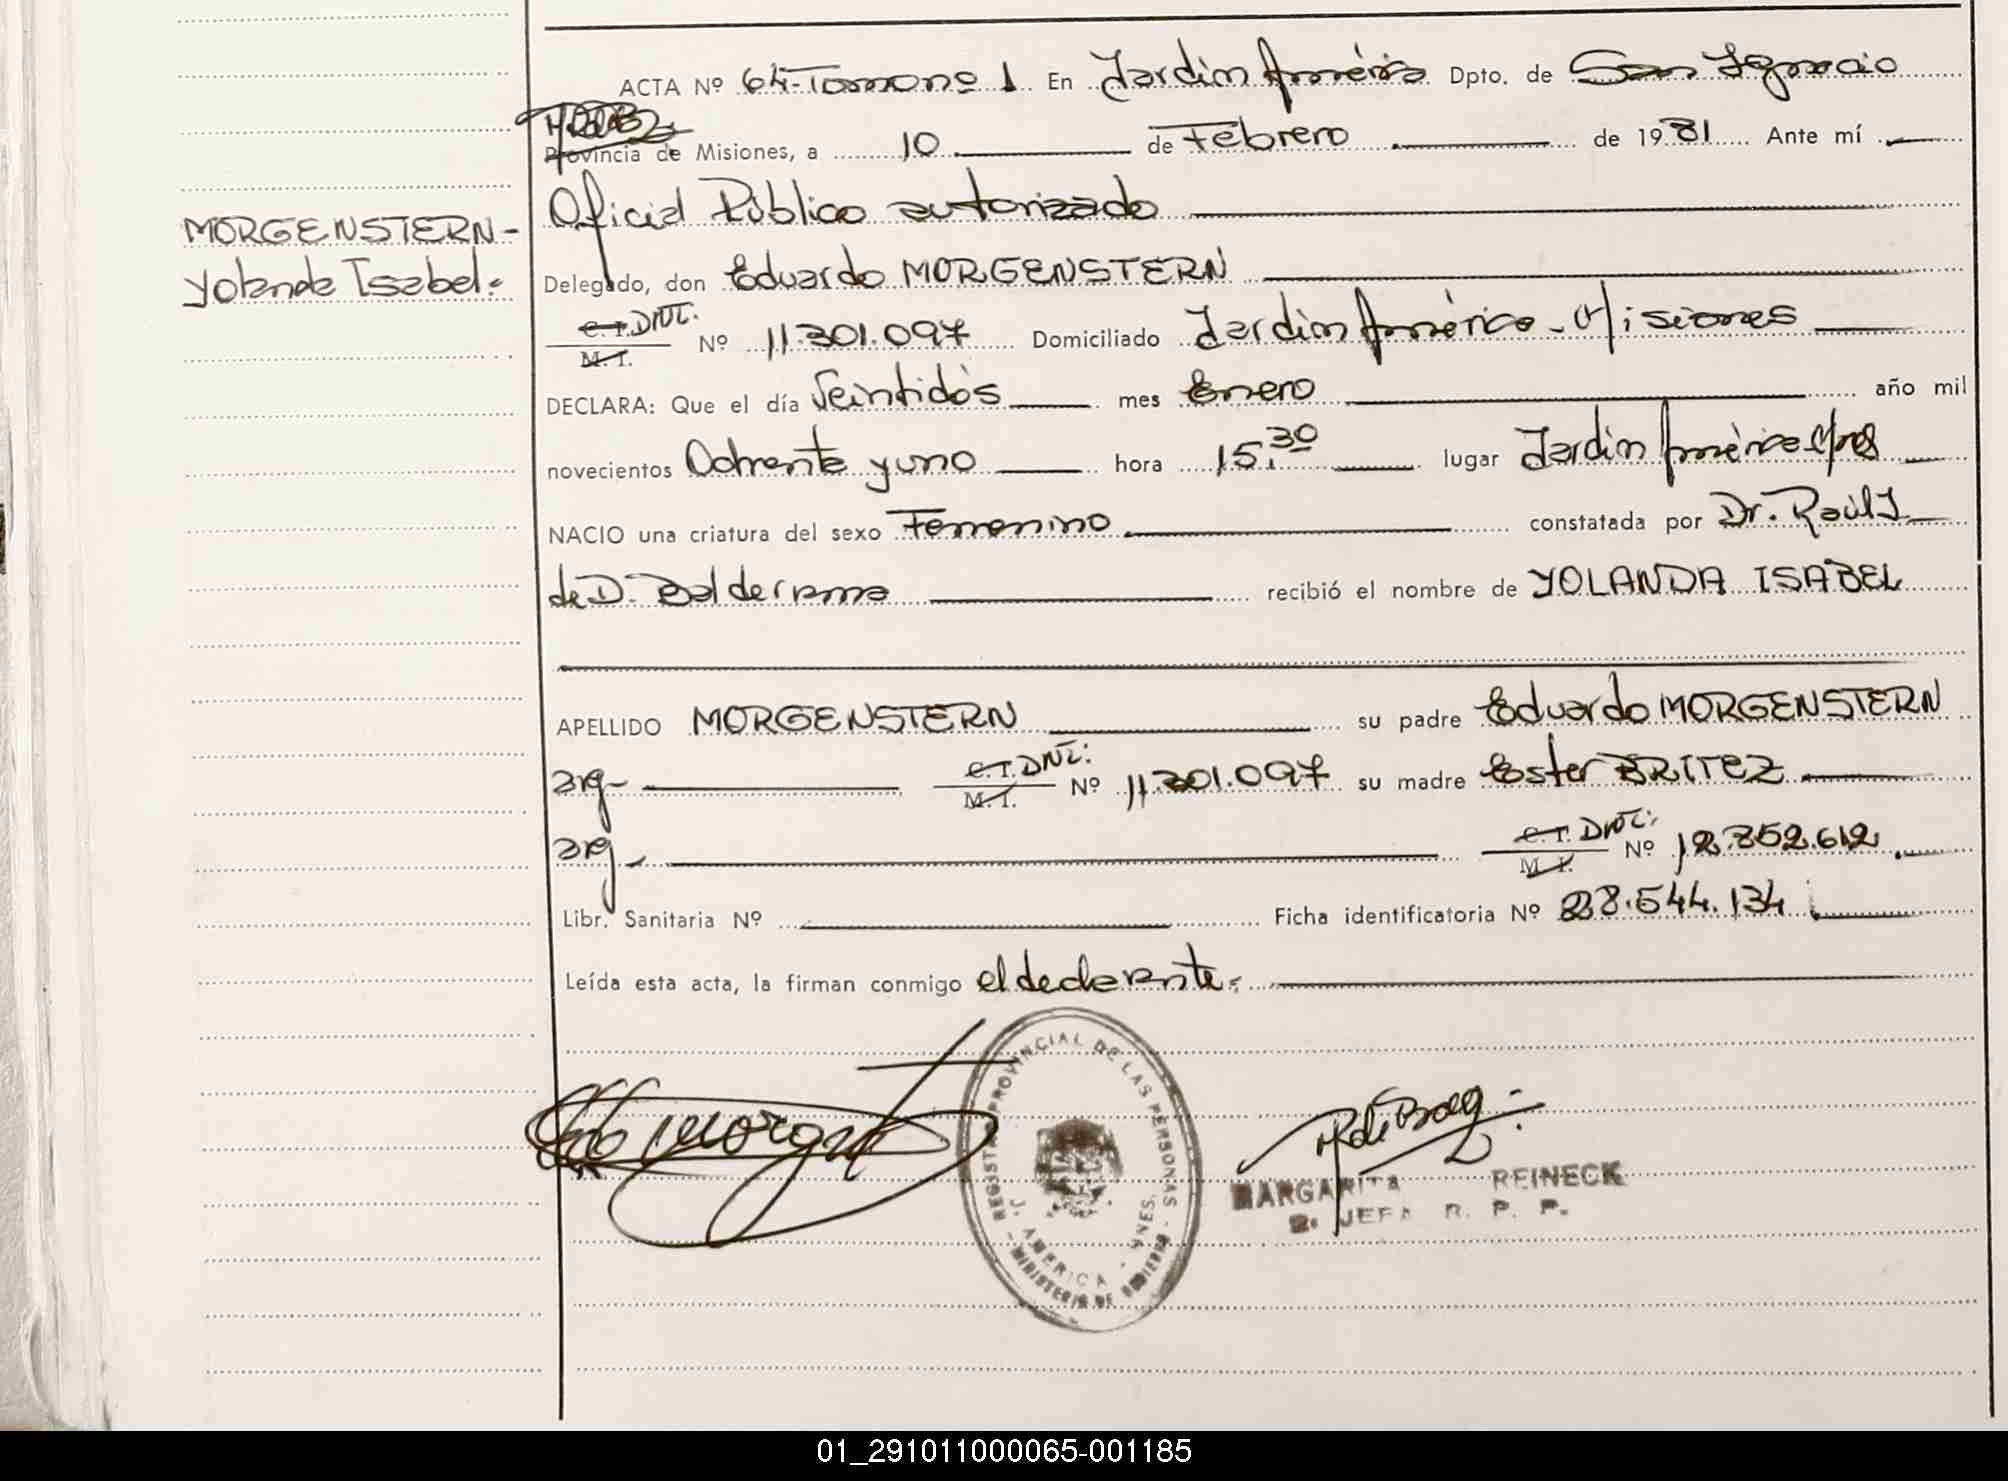 ACTA Nº 64-Tomo nº 1 En Jardín América Dpto. de San Ignacio
Provincia de Misiones, a 10 de Febrero de 1981 Ante mí
Oficial Público autorizado
MORGENSTERN-
Yolanda Isabel:
Delegado, don Eduardo MORGENSTERN
C. I. DNI:
M. I. Nº 11.301.097 Domiciliado Jardín América - Misiones
DECLARA: Que el día Veintidós mes Enero año mil
novecientos Ochenta y uno hora 15,30 lugar Jardín América Mnes
NACIO una criatura del sexo Femenino constatada por Dr. Raúl J.
de D. Balderrama recibió el nombre de YOLANDA ISABEL
APELLIDO MORGENSTERN su padre Eduardo MORGENSTERN
arg- C. I. DNI: M. I. Nº 11.301.097 su madre Ester BRITEZ
arg- C. I. DNI: M. I. Nº 12.852.612
Libr. Sanitaria Nº Ficha identificatoria Nº 28.544.134
Leída esta acta, la firman conmigo el declarante:
REGISTRO PROVINCIAL DE LAS PERSONAS
J. AMERICA - MNES.
MINISTERIO DE GOBIERNO
MARGARITA REINECK
2º JEFA R. P. P.
01_291011000065-001185